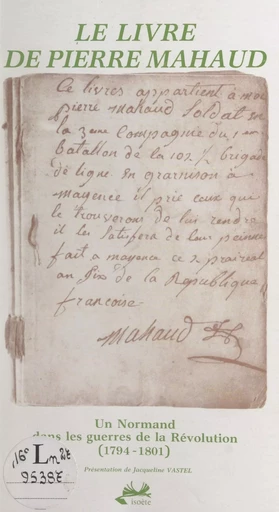 LE LIVRE
DE PIERRE MAHAUD
Ce livres appartient à moi
pierre mahaud Soldat en
la 3eme Compagnie du 1er
batallon de la 102 1/2 brigade
de ligne en garnison à
mayence il prie ceux qui
le trouverons de lui rendre
il les Satisfera de leur peines
fait a mayence ce 2 prairial
an Six de la Republique
francoise
Mahaud
Un Normand
dans les guerres de la Révolution
(1794-1801)
Présentation de Jacqueline VASTEL
isoète
16° L n 27
95387